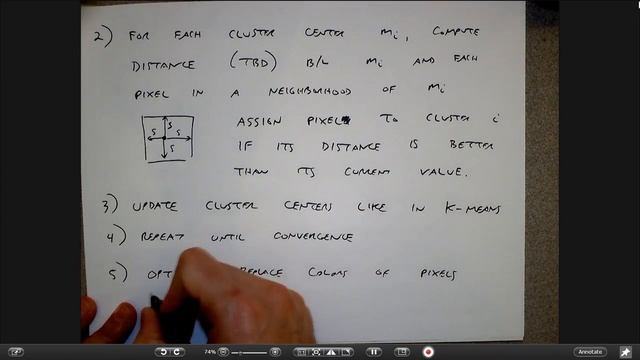 2) FOR EACH CLUSTER CENTER mi, COMPUTE
DISTANCE (TBD) B/W mi AND EACH
PIXEL IN A NEIGHBORHOOD OF mi
S S S S
ASSIGN PIXEL TO CLUSTER i
IF ITS DISTANCE IS BETTER
THAN ITS CURRENT VALUE.
3) UPDATE CLUSTER CENTERS LIKE IN K-MEANS
4) REPEAT UNTIL CONVERGENCE
5) REPLACE COLORS OF PIXELS
74%
Annotate